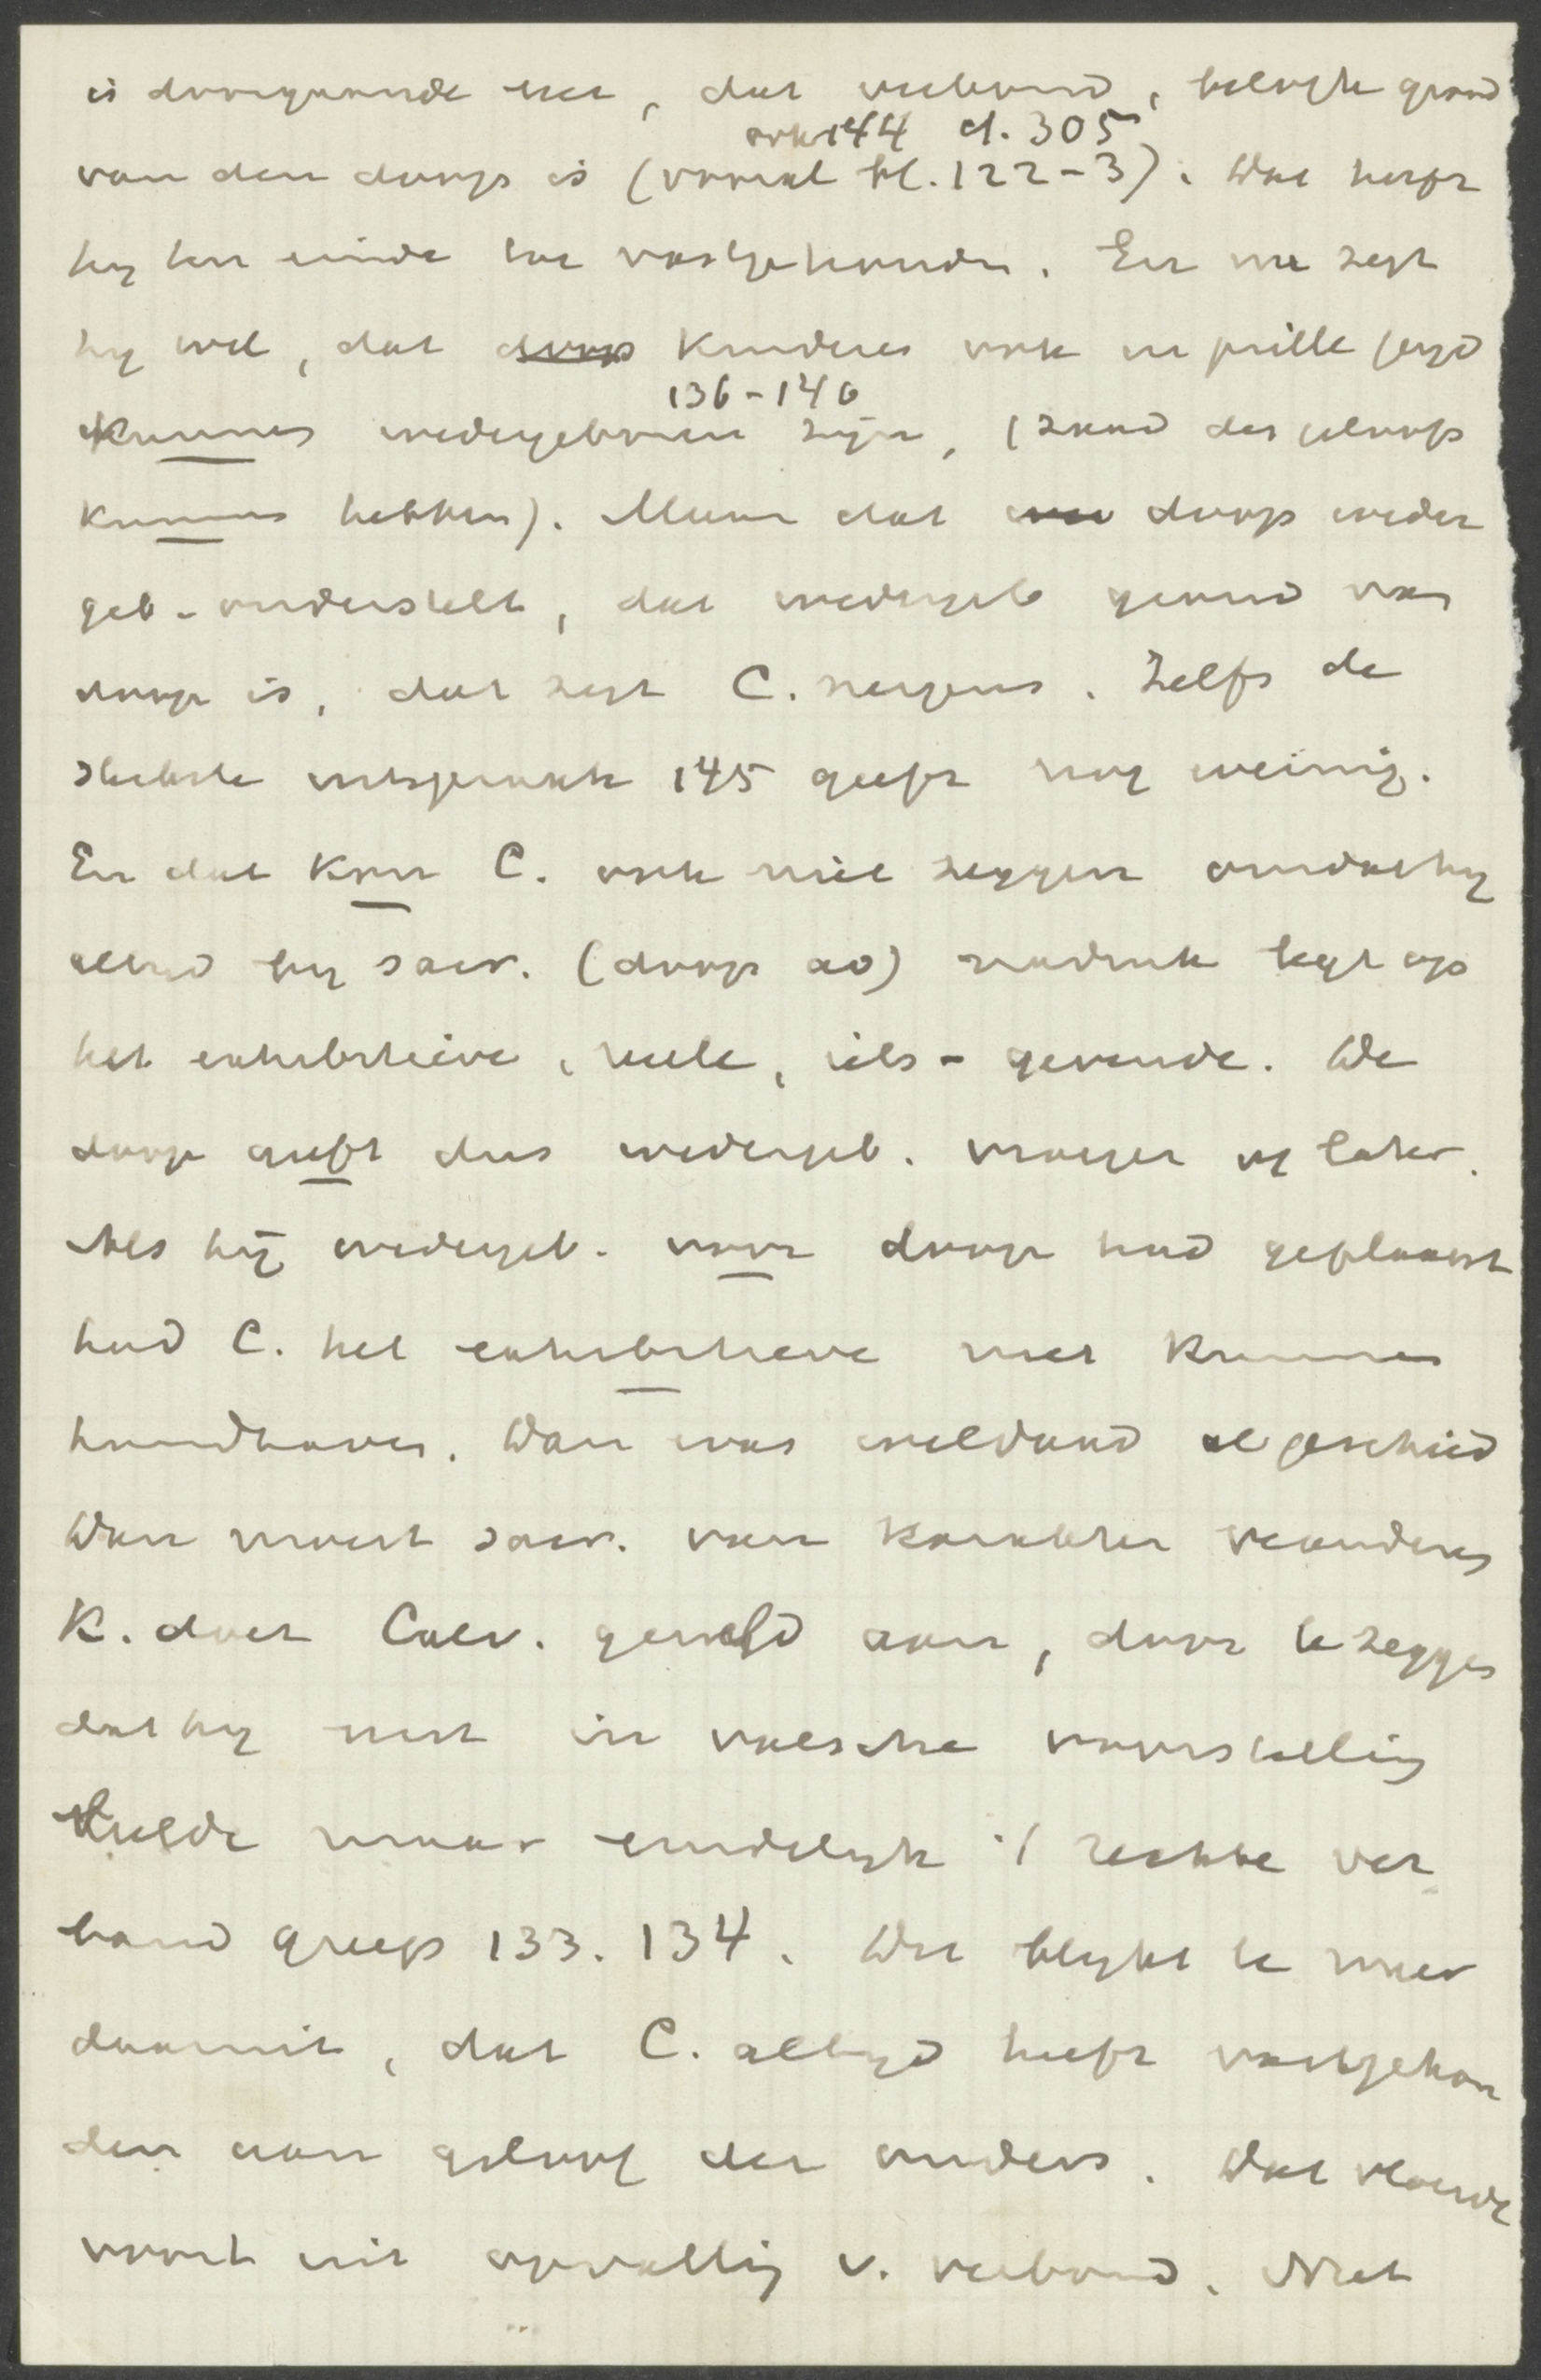 is doorgaande leer, dat verbond, belofte grond
ook 144 cf. 305
van den doop is (vooral bl. 122-3). Dat heeft
hij ten einde toe vastgehouden. En nu zegt
hij wel, dat doop kinderen ook in prille jeugd
136-146
kunnen wedergeboren zijn, (zaad des geloofs
kunnen hebben). Maar dat doop weder
geb. onderstelt, dat wedergeb grond van
doop is, dat zegt C. nergens. Zelfs de
sterkste uitspraak 145 geeft nog weinig.
En dat kon C. ook niet zeggen omdat hij
altijd bij sacr. (doop ao) nadruk legt op
het exhibitieve, reële, iets-gevende. De
doop geeft dus wedergeb. vroeger of later.
Als hij wedergeb. voor doop had geplaatst
had C. het exhibitieve niet kunnen
handhaven. Dan was weldaad al geschied
Dan moest sacr. van karakter veranderen
K. doet Calv. geweld aan, door te zeggen
dat hij eerst in valsche voorstelling
hulde maar eindelijk 't rechte ver
band greep 133. 134. Dit blijkt te meer
daaruit, dat C. altijd heeft vastgehou
den aan geloof der ouders. Dat vloeide
voort uit opvatting v. verbond. Niet